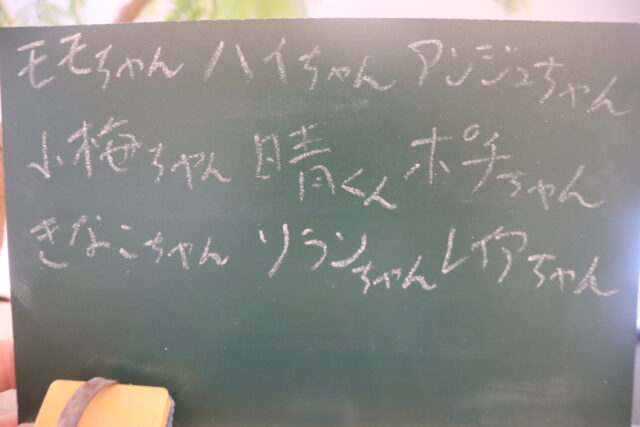 モモちゃん ハイちゃん アンジュちゃん
小梅ちゃん 晴くん ポチちゃん
きなこちゃん ソランちゃん レイアちゃん